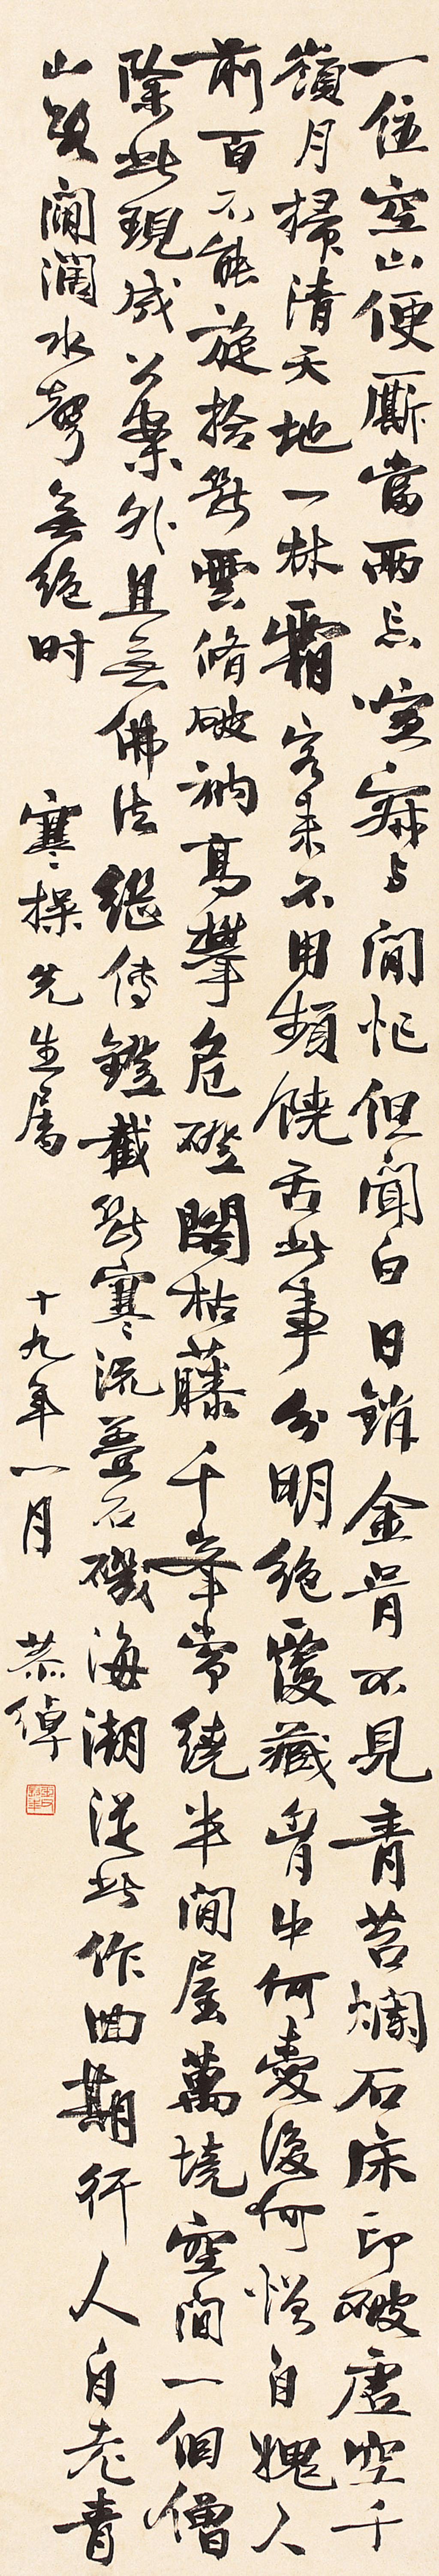 一住空山便廝當兩忘喧寂與閒忙但聞白日銷金骨不見青苔爛石床印破虛空千
嶺月掃清天地一林霜客來不用頻饒舌此事分明絕覆藏胷中何愛復何憎自愧人
前百不能旋拾斷雲脩破衲高攀危磴閣枯藤千峯常繞半間屋萬境空閒一個僧
除此現成公案外且無佛法繼傳鐙截斷寒流疊石磯海潮從此作回期行人自老青
山路澗濶水聲無絕時
寒操先生屬
十九年一月
恭綽